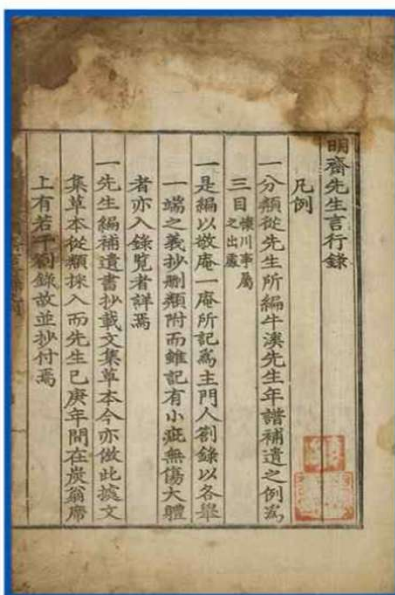 明齋先生言行錄
凡例
一分類從先生所編牛溪先生年譜補遺之例爲
三目懷川事屬之出處
一是編以敬庵一庵所記爲主門人劄錄以各擧
一端之義抄刪類附而雖記有小疵無傷大體
者亦入錄覽者詳焉
一先生編補遺書抄載文集草本今亦倣此據文
集草本從類採入而先生已庚年間在炭翁席
上有若干劄錄故並抄付焉